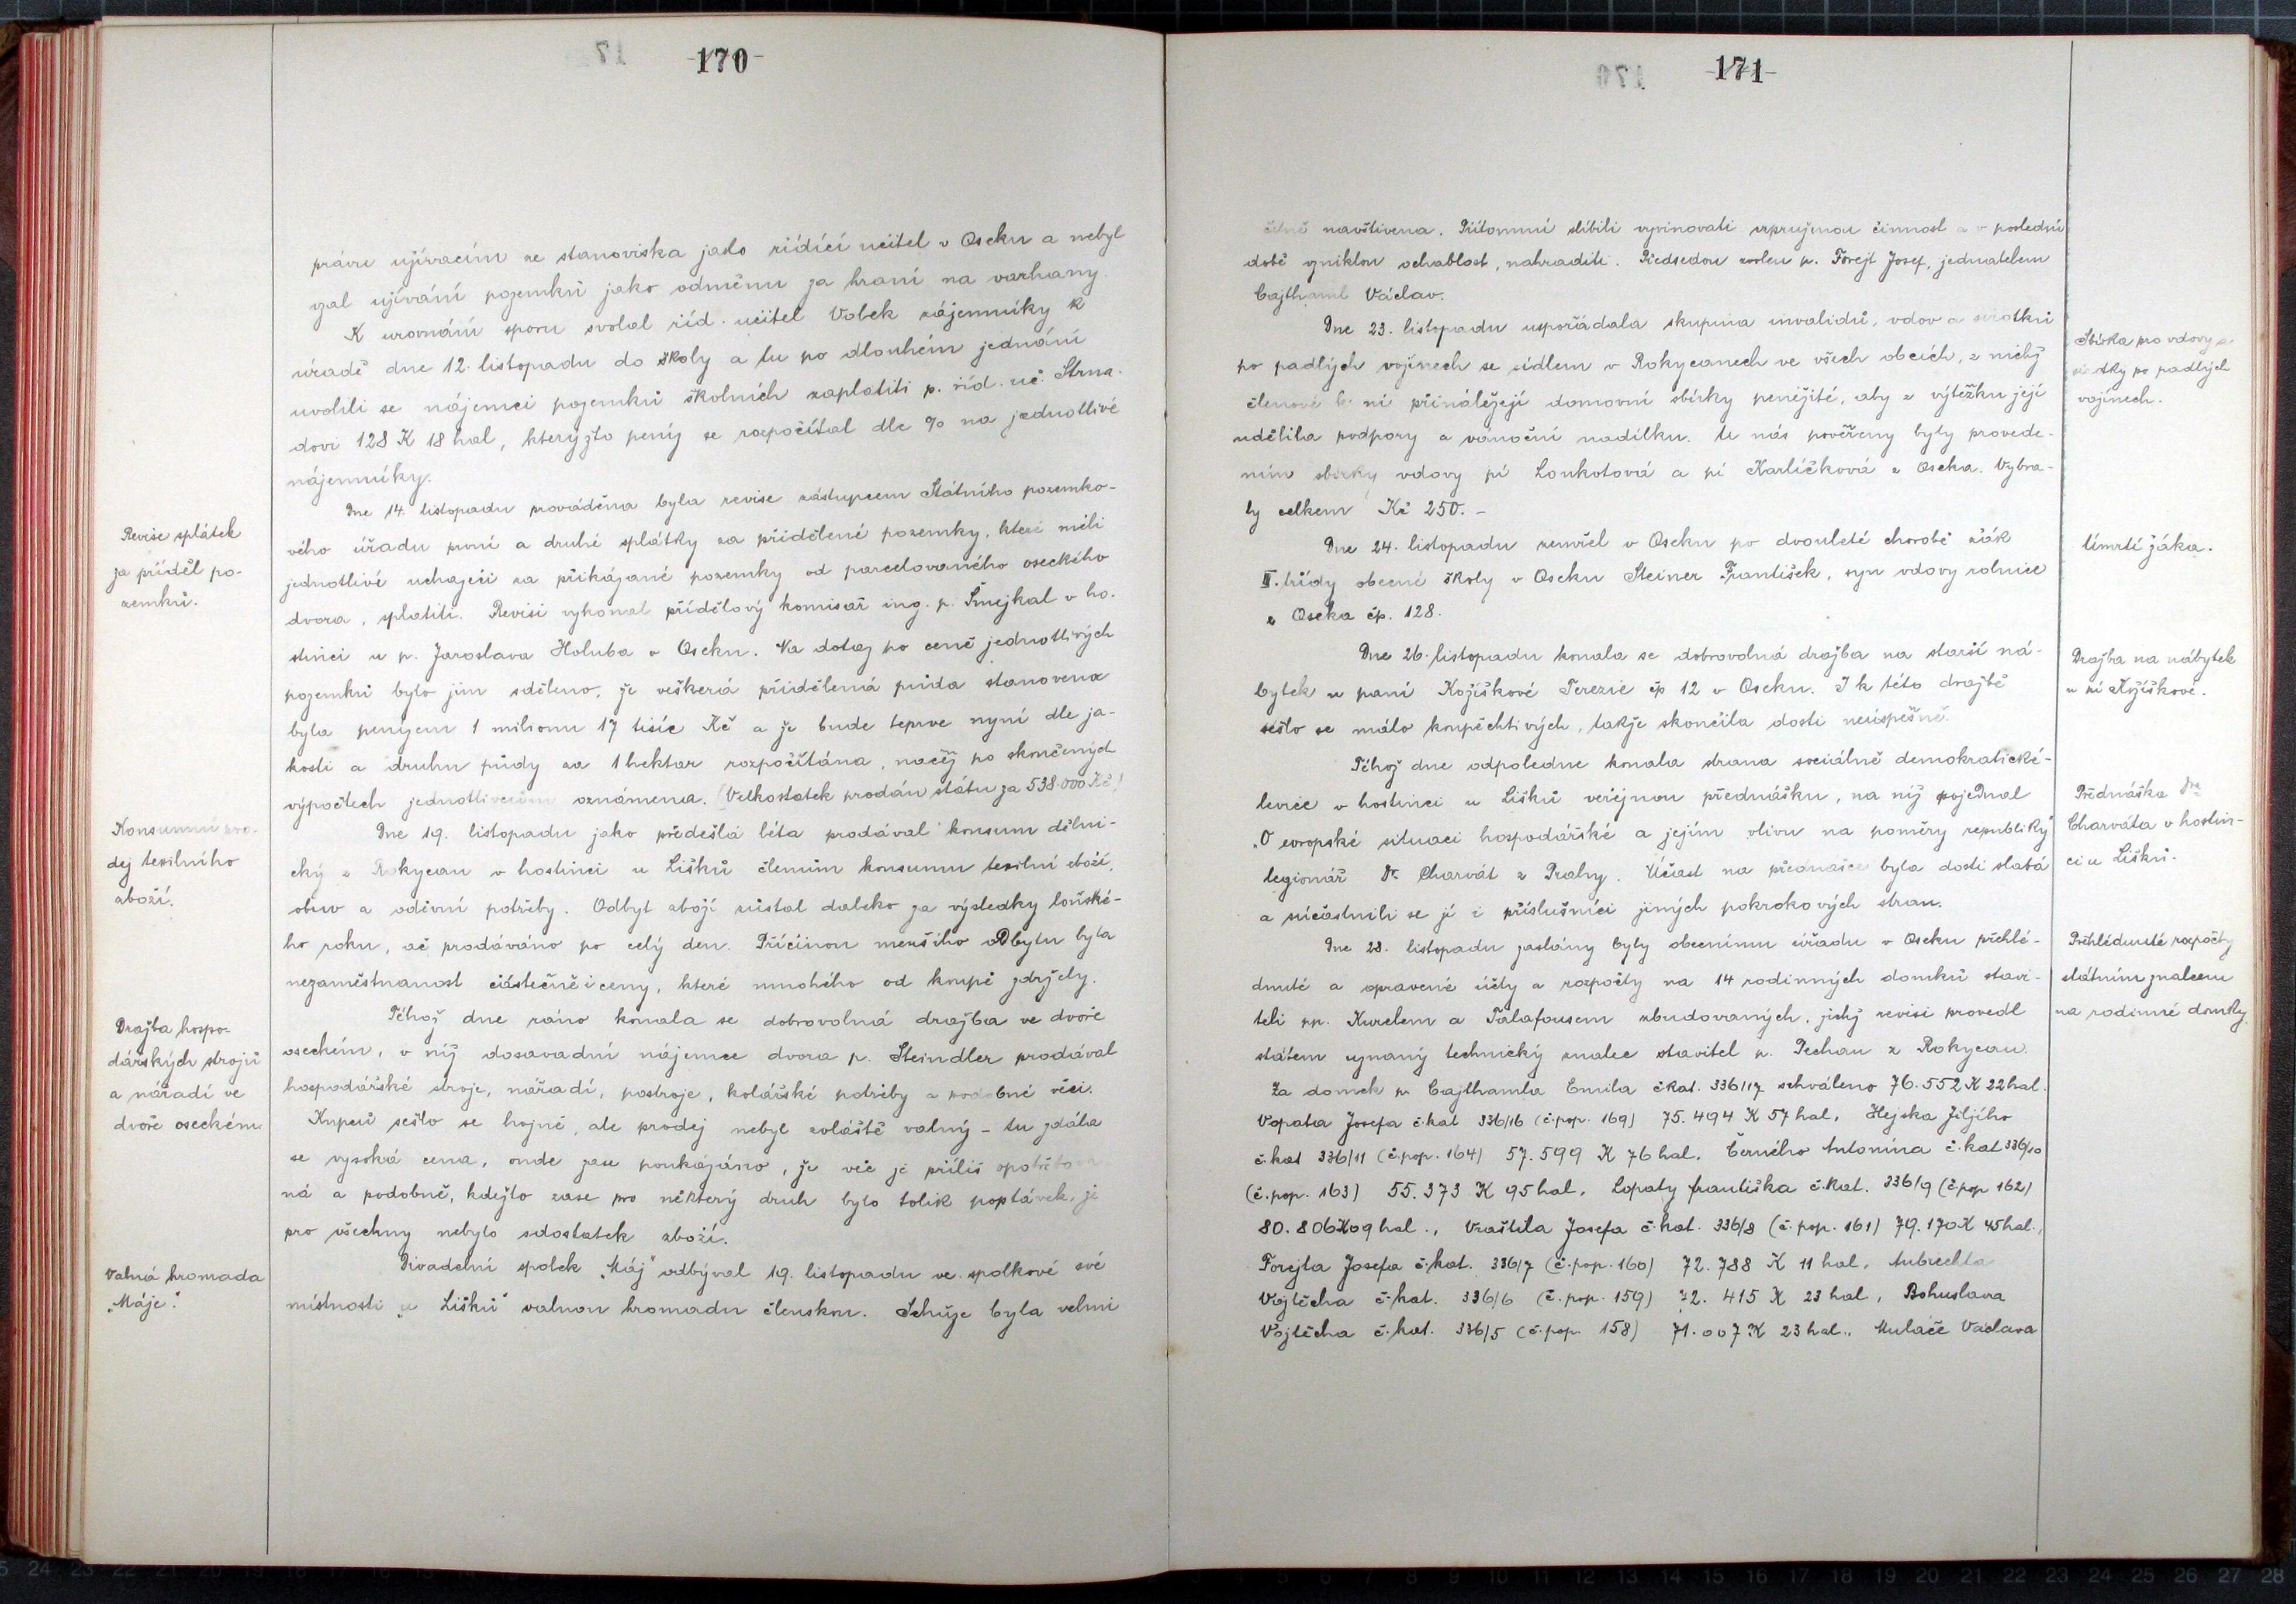 170
práve ujívacím ze stanoviska jako řídící učitel v Oseku a nebyl
gal ujívání pozemků jako odměnu za hraní na varhany.
K urovnání sporu svolal říd. učitel Vobek nájemníky k
úradě dne 12. listopadu do školy a tu po dlouhém jednání
uvolili se nájemci pozemků školních zaplatiti p. říd. uč. Strna-
dovi 128 K 18 hal, kterýžto peníz se rozpočítal dle % na jednotlivé
nájemníky.
Revise splátek
za příděl po-
zemků.
Dne 14. listopadu prováděna byla revise zástupcem Státního pozemko-
vého úřadu první a druhé splátky za přidělené pozemky, které měli
jednotliví uchazeči za přikázané pozemky od parcelovaného oseckého
dvora, splatiti. Revisi vykonal přídělový komisař ing. p. Šmejkal v ho-
stinci u p. Jaroslava Holuba v Oseku. Na dotaz po ceně jednotlivých
pozemků bylo jim sděleno, že veškerá přidělená půda stanovena
byla penízem 1 milionu 17 tisíc Kč a že bude teprve nyní dle ja-
kosti a druhu půdy za 1 hektar rozpočítána, načež po skončených
výpočtech jednotlivcům oznámena. (Velkostatek prodán státu za 538.000 Kč)
Konsumní pro-
dej texilního
zboží.
Dne 19. listopadu jako předešlá léta prodával konsum dělni-
cký z Rokycan v hostinci u Lišků členům konsumu texilní zboží,
obuv a oděvní potřeby. Odbyt zboží zůstal daleko za výsledky loňské-
ho roku, ač prodáváno po celý den. Příčinou menšího odbytu byla
nezaměstnanost částečně i ceny, které mnohého od koupě zdržely.
Dražba hospo-
dářských strojů
a nářadí ve
dvoře oseckém.
Téhož dne ráno konala se dobrovolná dražba ve dvoře
oseckém, v níž dosavadní nájemce dvora p. Steindler prodával
hospodářské stroje, nářadí, postroje, kolářské potřeby a podobné věci.
Kupců sešlo se hojně, ale prodej nebyl zvláště valný – tu zdála
se vysoká cena, onde zase poukázáno, že věc je příliš opotřebova
ná a podobně, kdežto zase pro některý druh bylo tolik poptávek, že
pro všechny nebylo sdostatek zboží.
Valná hromada
„Máje".
Divadelní spolek „Máj" odbýval 19. listopadu ve spolkové své
místnosti „u Lišků" valnou hromadu členskou. Schůze byla velmi
171
četně navštívena. Přítomní slíbili vyvinovati usprujenou činnost a v poslední
době vzniklou ochablost, nahraditi. Předsedou zvolen p. Forejt Josef, jednatelem
Cajthaml Václav.
Sbírka pro vdovy a
sirotky po padlých
vojínech.
Dne 23. listopadu uspořádala skupina invalidů, vdov a sirotků
po padlých vojínech se sídlem v Rokycanech ve všech obcích, z nichž
členové k ní přináležejí domovní sbírky peněžité, aby z výtěžku její
udělila podpory a vánoční nadílku. U nás pověřeny byly provede-
ním sbírky vdovy pí Loukotová a pí Karlíčková z Oseka. Vybra-
ly celkem Kč 250.-
Úmrtí žáka.
Dne 24. listopadu zemřel v Oseku po dvouleté chorobě žák
II. třídy obecné školy v Oseku Steiner František, syn vdovy rolnice
z Oseka čp. 128.
Dražba na nábytek
u pí Kojíškové.
Dne 26. listopadu konala se dobrovolná dražba na starší ná-
bytek u paní Kojíškové Terezie čp 12 v Oseku. I k této dražbě
sešlo se málo koupěchtivých, takže skončila dosti neúspěšně.
Přednáška Dra
Charváta v hostin-
ci u Lišků.
Téhož dne odpoledne konala strana sociálně demokratické-
levice v hostinci u Lišků veřejnou přednášku, na níž pojednal
„O evropské situaci hospodářské a jejím vlivu na poměry republiky"
legionář Dr. Charvát z Prahy. Účast na přednášce byla dosti slabá
a súčastnili se jí i příslušníci jiných pokrokových stran.
Přehlédnuté rozpočty
státním znalcem
na rodinné domky.
Dne 28. listopadu zaslány byly obecnímu úřadu v Oseku přehlé-
dnuté a opravené účty a rozpočty na 14 rodinných domků stavi-
teli pp. Kurelem a Talafousem zbudovaných, jichž revisi provedl
státem uznaný technický znalec stavitel p. Pechan z Rokycan.
Za domek p. Cajthamla Emila č.kat. 336/17 schváleno 76.552 K 22 hal.
Vopata Josefa č.kat 336/16 (č.pop. 169) 75.494 K 57 hal, Hejska Jiljího
č.kat 336/11 (č.pop. 164) 57.599 K 76 hal. Černého Antonína č.kat 336/10
(č.pop. 163) 55.373 K 95 hal, Lopaty Františka č.kat. 336/9 (č.pop 162)
80.806 K 09 hal., Vraštila Josefa č.kat. 336/8 (č.pop. 161) 79.170 K 45 hal.,
Forejta Josefa č.kat. 336/7 (č.pop. 160) 72.788 K 11 hal, Aubrechta
Vojtěcha č.kat. 336/6 (č.pop. 159) 72.415 K 23 hal, Bohuslava
Vojtěcha č.kat. 336/5 (č.pop. 158) 71.007 K 23 hal., Mulače Václava